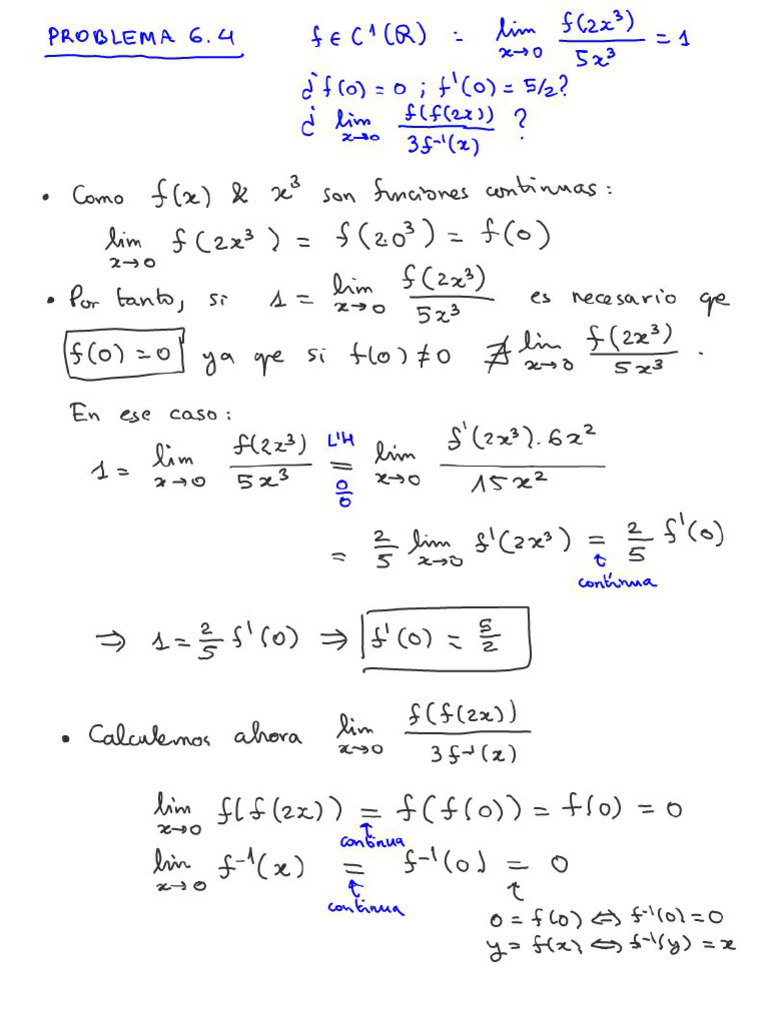 PROBLEMA 6.4 f ∈ C¹(ℝ) : lim x→0 f(2x³)/5x³ = 1
¿f(0) = 0 ; f'(0) = 5/2?
¿ lim x→0 f(f(2x))/3f⁻¹(x) ?
• Como f(x) & x³ son funciones continuas :
lim x→0 f(2x³) = f(2.0³) = f(0)
• Por tanto, si 1 = lim x→0 f(2x³)/5x³ es necesario qe
f(0) = 0 ya qe si f(0) ≠ 0 ∄ lim x→0 f(2x³)/5x³ .
En ese caso :
1 = lim x→0 f(2x³)/5x³ = L'H 0/0 lim x→0 f'(2x³).6x²/15x²
= 2/5 lim x→0 f'(2x³) = 2/5 f'(0)
↑
continua
⇒ 1 = 2/5 f'(0) ⇒ f'(0) = 5/2
• Calculemos ahora lim x→0 f(f(2x))/3f⁻¹(x)
lim x→0 f(f(2x)) = f(f(0)) = f(0) = 0
↑
continua
lim x→0 f⁻¹(x) = f⁻¹(0) = 0
↑ ↑
continua
0 = f(0) ⇔ f⁻¹(0) = 0
y = f(x) ⇔ f⁻¹(y) = x